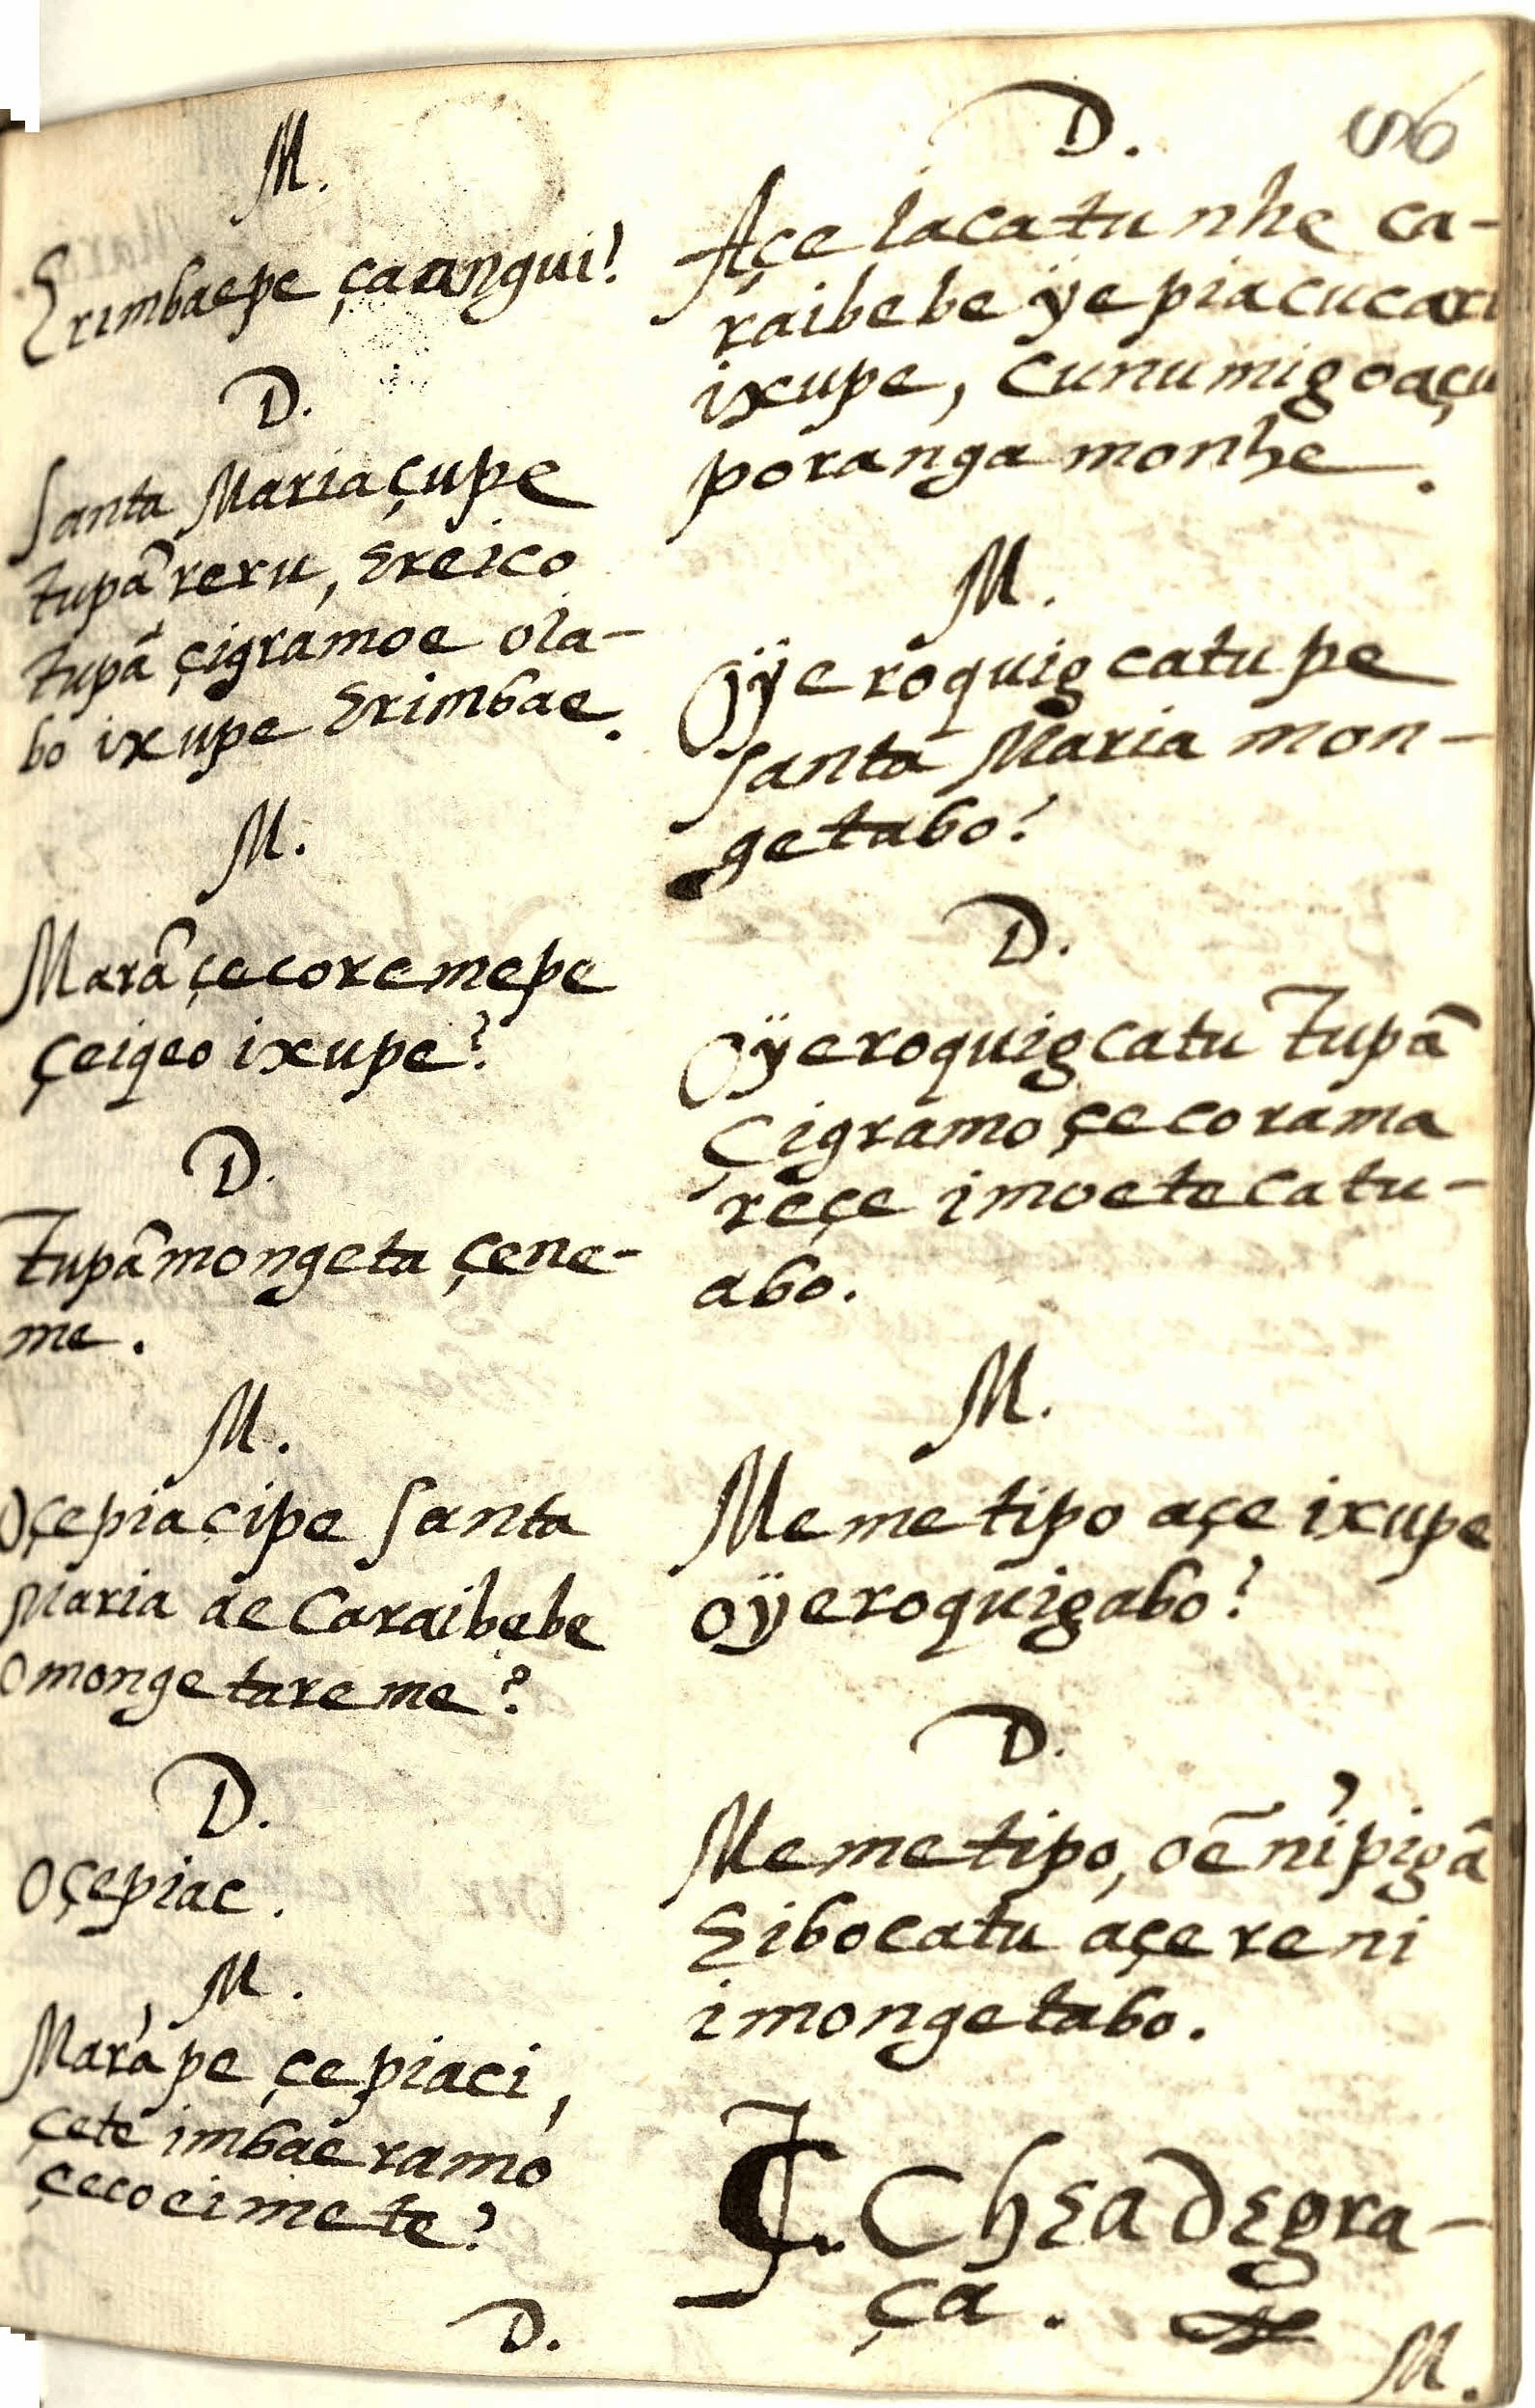 M.
Erimbaepe çaangui?
D.
Santa Maria çupe
tupã reru, Ereico
tupã çigramoe oia-
bo ixupe Erimbae.
M.
Marã çecoremepe
çeiqeo ixupe?
D.
Tupã mongeta çene-
me.
M.
Oçepiacipe Santa
Maria ae Caraibebe
omongetareme?
D.
Oçepiac.
M.
Marápe çepiaci,
çete imbae ramo
çecoeimete?
D.
D.
56
Açe iacatunhe ca-
raibebe ÿepiacucari
ixupe, Cunumigoaçu
poranga monhe.
M.
Oÿeroquigcatupe
Santa Maria mon-
getabo?
D.
Oÿeroquigcatu Tupã
Çigramo çecorama
reçe imoetecatu-
abo.
M.
Memetipo açe ixupe
oÿeroquigabo?
D.
Memetipo, oẽnipigã
Eibocatu açereni
imongetabo.
₵. Chea de gra-
ça.
M.